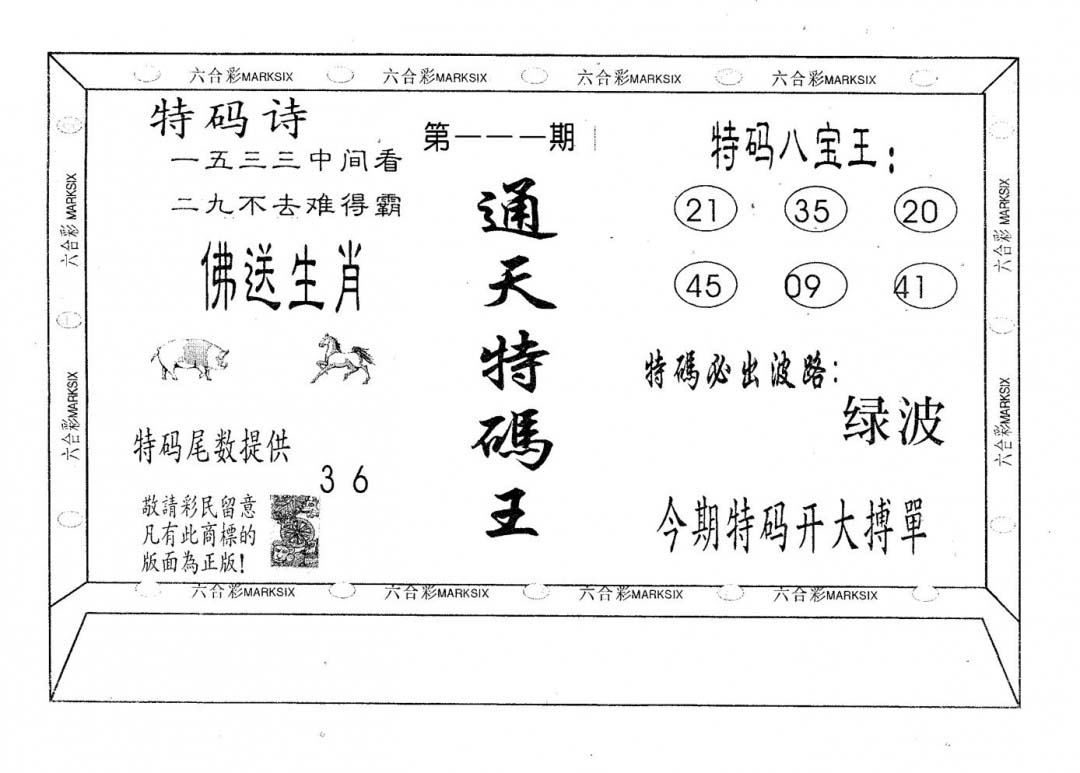 六合彩MARKSIX 六合彩MARKSIX 六合彩MARKSIX 六合彩MARKSIX
特码诗
一五三三中间看
二九不去难得霸
佛送生肖
特码尾数提供
3 6
敬請彩民留意
凡有此商標的
版面為正版!
第一一一期
通天特碼王
特码八宝王:
21 35 20
45 09 41
特碼必出波路:
绿波
今期特码开大搏單
六合彩 MARKSIX
六合彩MARKSIX
六合彩 MARKSIX
六合彩MARKSIX
六合彩MARKSIX 六合彩MARKSIX 六合彩MARKSIX 六合彩MARKSIX